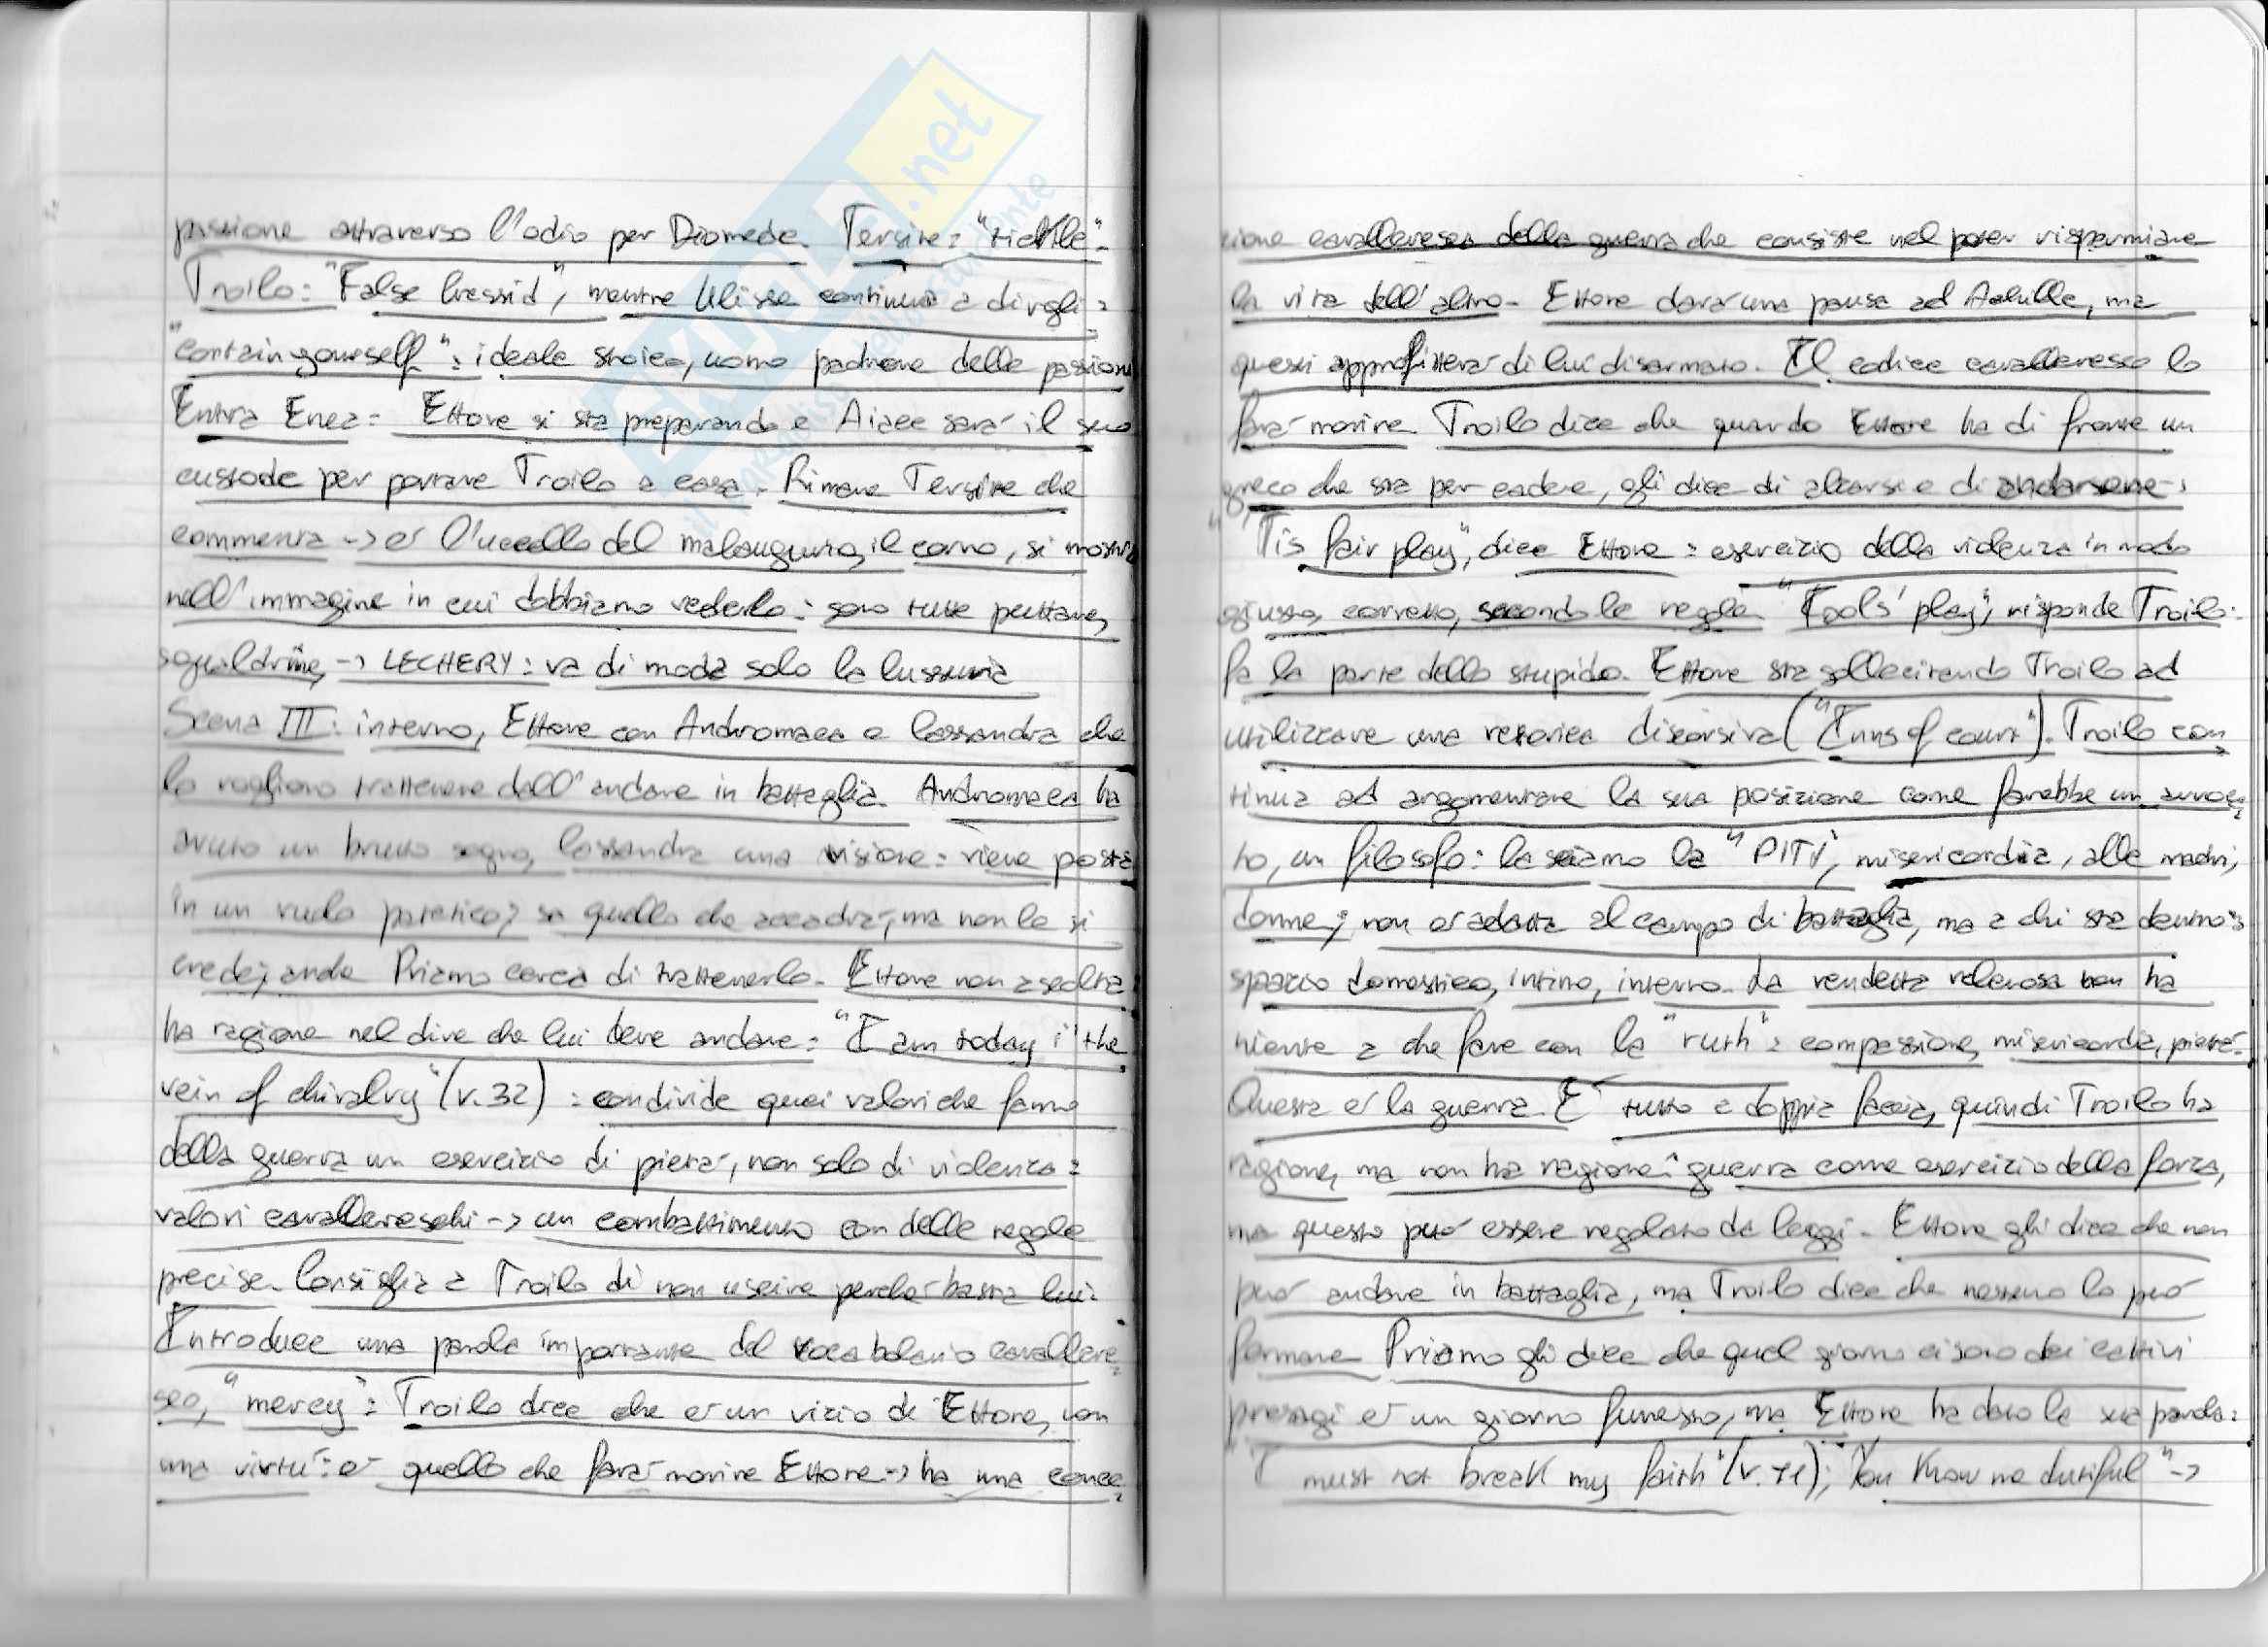 passione attraverso l'odio per Diomede. Tersite: "tickle".
Troilo: "False Cressid", mentre Ulisse continua a dirgli:
"contain yourself": ideale stoico, uomo padrone delle passioni
Entra Enea: Ettore si sta preparando e Aiace sarà il suo
custode per portare Troilo a casa. Rimane Tersite che
commenta -> è l'uccello del malaugurio, il corvo, si mostra
nell'immagine in cui dobbiamo vederlo: sono tutte puttane,
squaldrine, -> LECHERY: va di moda solo la lussuria
Scena III: interno, Ettore con Andromaca e Cassandra che
lo vogliono trattenere dall'andare in battaglia. Andromaca ha
avuto un brutto sogno, Cassandra una visione: viene posta
in un ruolo patetico, sa quello che accadrà, ma non le si
crede; anche Priamo cerca di trattenerlo. Ettore non ascolta
ha ragione nel dire che lui deve andare: "I am today i' the
vein of chivalry" (v.32): condivide quei valori che fanno
della guerra un esercizio di pietà, non solo di violenza:
valori cavallereschi -> un combattimento con delle regole
precise. Consiglia a Troilo di non uscire perché basta lui.
Introduce una parola importante del vocabolario cavallere
sco, "mercy": Troilo dice che è un vizio di Ettore, non
una virtù: è quello che farà morire Ettore -> ha una conce
zione cavalleresca della guerra che consiste nel poter risparmiare
la vita dell'altro. Ettore darà una pausa ad Achille, ma
questi approfitterà di lui disarmato. Il codice cavalleresco lo
farà morire. Troilo dice che quando Ettore ha di fronte un
greco che sta per cadere, gli dice di alzarsi e di andarsene.
"'Tis fair play", dice Ettore: esercizio della violenza in modo
giusto, corretto, secondo le regole. "Fools' play", risponde Troilo:
fa la parte dello stupido. Ettore sta sollecitando Troilo ad
utilizzare una retorica discorsiva ("Inns of court"). Troilo con
tinua ad argomentare la sua posizione come farebbe un avvoca
to, un filosofo: lasciamo la "PITY", misericordia, alle madri,
donne; non è adatta al campo di battaglia, ma a chi sta dentro:
spazio domestico, intimo, interno. La vendetta velenosa non ha
niente a che fare con la "ruth": compassione, misericordia, pietà.
Questa è la guerra. È tutto a doppia faccia, quindi Troilo ha
ragione, ma non ha ragione: guerra come esercizio della forza,
ma questo può essere regolato da leggi. Ettore gli dice che non
può andare in battaglia, ma Troilo dice che nessuno lo può
fermare. Priamo gli dice che quel giorno ci sono dei cattivi
presagi è un giorno funesto, ma Ettore ha dato la sua parola:
"I must not break my faith" (v.71); "You know me dutiful" ->